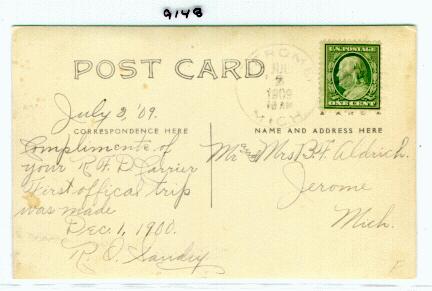 9148
POST CARD
JEROME
JUL
2
1909
MICH.
U.S. POSTAGE
ONE CENT
July 3, '09.
CORRESPONDENCE HERE
NAME AND ADDRESS HERE
Compliments of
your R.F.D Carrier
First offical trip
was made
Dec. 1, 1900.
R. O.
Mr and Mrs B.F. Aldrich.
Jerome
Mich.